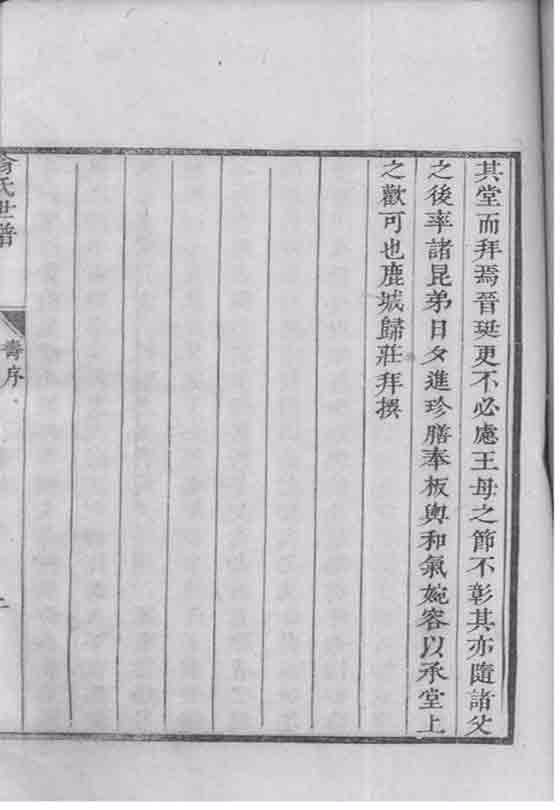 其堂而拜焉晉珽更不必慮王母之節不彰其亦隨諸父
之後率諸昆弟日夕進珍膳奉板輿和氣婉容以承堂上
之歡可也鹿城歸莊拜撰
俞氏世譜
壽序